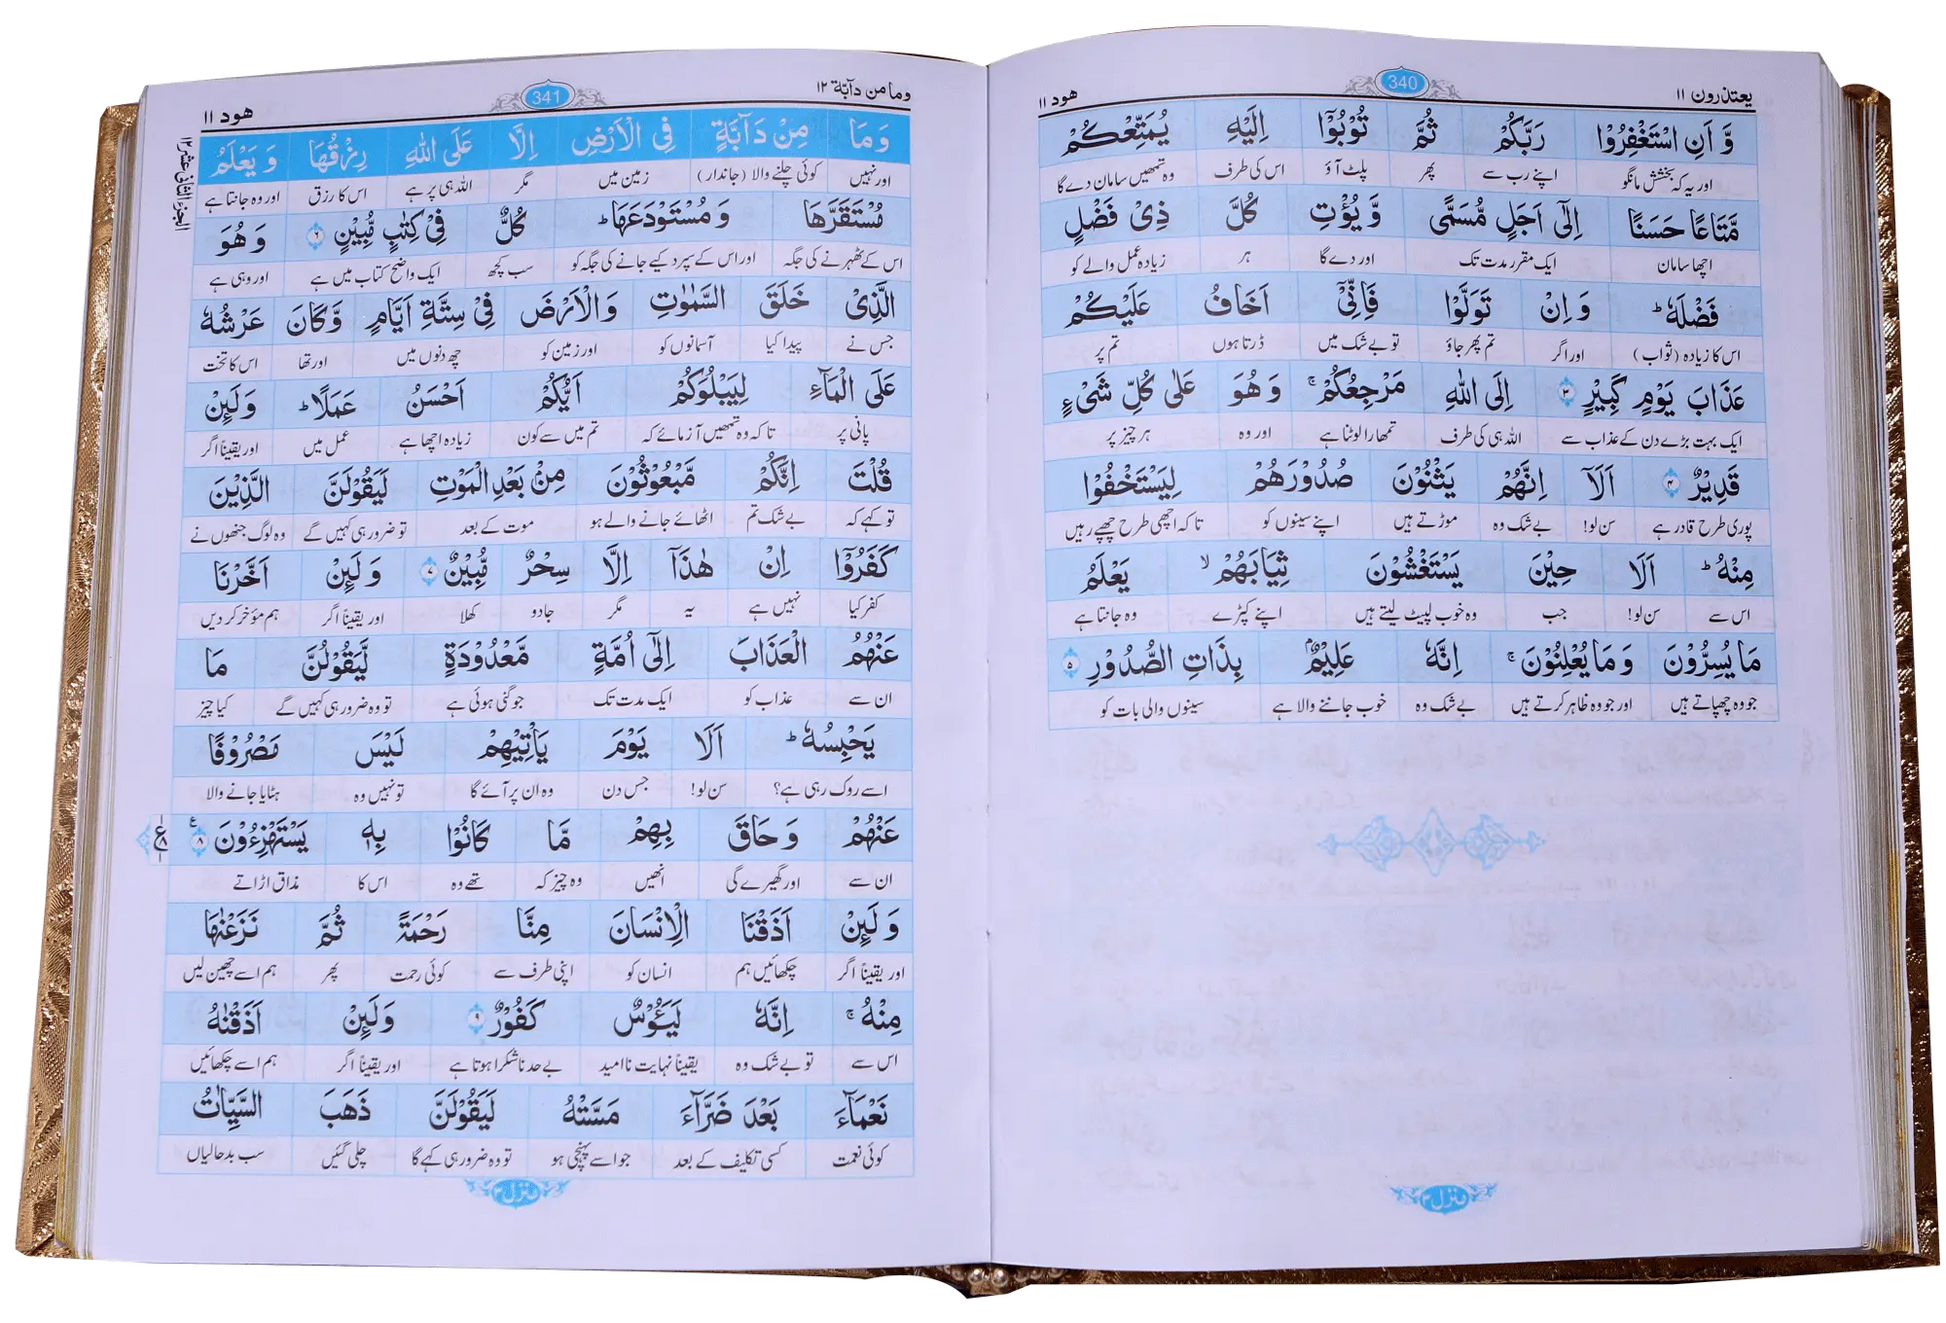 یعتذرون ۱۱ 340 ھود ۱۱
وَّ اَنِ اسْتَغْفِرُوْا رَبَّكُمْ ثُمَّ تُوْبُوْۤا اِلَیْهِ یُمَتِّعْكُمْ
اور یہ کہ بخشش مانگو اپنے رب سے پھر پلٹ آؤ اس کی طرف وہ تمھیں سامان دے گا
مَّتَاعًا حَسَنًا اِلٰۤى اَجَلٍ مُّسَمًّى وَّ یُؤْتِ كُلَّ ذِیْ فَضْلٍ
اچھا سامان ایک مقرر مدت تک اور دے گا ہر زیادہ عمل والے کو
فَضْلَهٗ ؕ وَ اِنْ تَوَلَّوْا فَاِنِّیْۤ اَخَافُ عَلَیْكُمْ
اس کا زیادہ (ثواب) اور اگر تم پھر جاؤ تو بے شک میں ڈرتا ہوں تم پر
عَذَابَ یَوْمٍ كَبِیْرٍ ۳ اِلَى اللّٰهِ مَرْجِعُكُمْ ۚ وَ هُوَ عَلٰى كُلِّ شَیْءٍ
ایک بہت بڑے دن کے عذاب سے اللہ ہی کی طرف تمھارا لوٹنا ہے اور وہ ہر چیز پر
قَدِیْرٌ ۴ اَلَاۤ اِنَّهُمْ یَثْنُوْنَ صُدُوْرَهُمْ لِیَسْتَخْفُوْا
پوری طرح قادر ہے سن لو! بے شک وہ موڑتے ہیں اپنے سینوں کو تاکہ اچھی طرح چھپے رہیں
مِنْهُ ؕ اَلَا حِیْنَ یَسْتَغْشُوْنَ ثِیَابَهُمْ ۙ یَعْلَمُ
اس سے سن لو! جب وہ خوب لپیٹ لیتے ہیں اپنے کپڑے وہ جانتا ہے
مَا یُسِرُّوْنَ وَ مَا یُعْلِنُوْنَ ۚ اِنَّهٗ عَلِیْمٌۢ بِذَاتِ الصُّدُوْرِ ۵
جو وہ چھپاتے ہیں اور جو وہ ظاہر کرتے ہیں بے شک وہ خوب جاننے والا ہے سینوں والی بات کو
منزل ۳
وما من دآبّة ۱۲ 341 ھود ۱۱
الجزء الثانی عشر ۱۲
وَ مَا مِنْ دَآبَّةٍ فِی الْاَرْضِ اِلَّا عَلَى اللّٰهِ رِزْقُهَا وَ یَعْلَمُ
اور نہیں کوئی چلنے والا (جاندار) زمین میں مگر اللہ ہی پر ہے اس کا رزق اور وہ جانتا ہے
مُسْتَقَرَّهَا وَ مُسْتَوْدَعَهَا ؕ كُلٌّ فِیْ كِتٰبٍ مُّبِیْنٍ ۶ وَ هُوَ
اس کے ٹھہرنے کی جگہ اور اس کے سپرد کیے جانے کی جگہ کو سب کچھ ایک واضح کتاب میں ہے اور وہی ہے
الَّذِیْ خَلَقَ السَّمٰوٰتِ وَ الْاَرْضَ فِیْ سِتَّةِ اَیَّامٍ وَّ كَانَ عَرْشُهٗ
جس نے پیدا کیا آسمانوں کو اور زمین کو چھ دنوں میں اور تھا اس کا تخت
عَلَى الْمَآءِ لِیَبْلُوَكُمْ اَیُّكُمْ اَحْسَنُ عَمَلًا ؕ وَ لَىِٕنْ
پانی پر تاکہ وہ تمھیں آزمائے کہ تم میں سے کون زیادہ اچھا ہے عمل میں اور یقیناً اگر
قُلْتَ اِنَّكُمْ مَّبْعُوْثُوْنَ مِنْۢ بَعْدِ الْمَوْتِ لَیَقُوْلَنَّ الَّذِیْنَ
تو کہے کہ بے شک تم اٹھائے جانے والے ہو موت کے بعد تو ضرور ہی کہیں گے وہ لوگ جنھوں نے
كَفَرُوْۤا اِنْ هٰذَاۤ اِلَّا سِحْرٌ مُّبِیْنٌ ۷ وَ لَىِٕنْ اَخَّرْنَا
کفر کیا نہیں ہے یہ مگر جادو کھلا اور یقیناً اگر ہم مؤخر کر دیں
عَنْهُمُ الْعَذَابَ اِلٰۤى اُمَّةٍ مَّعْدُوْدَةٍ لَّیَقُوْلُنَّ مَا
ان سے عذاب کو ایک مدت تک جو گنی ہوئی ہے تو وہ ضرور ہی کہیں گے کیا چیز
یَحْبِسُهٗ ؕ اَلَا یَوْمَ یَاْتِیْهِمْ لَیْسَ مَصْرُوْفًا
اسے روک رہی ہے؟ سن لو! جس دن وہ ان پر آئے گا تو نہیں وہ ہٹایا جانے والا
عَنْهُمْ وَ حَاقَ بِهِمْ مَّا كَانُوْا بِهٖ یَسْتَهْزِءُوْنَ ۸ ع
ان سے اور گھیرے گی انھیں وہ چیز کہ تھے وہ اس کا مذاق اڑاتے
وَ لَىِٕنْ اَذَقْنَا الْاِنْسَانَ مِنَّا رَحْمَةً ثُمَّ نَزَعْنٰهَا
اور یقیناً اگر چکھائیں ہم انسان کو اپنی طرف سے کوئی رحمت پھر ہم اسے چھین لیں
مِنْهُ ۚ اِنَّهٗ لَیَـُٔوْسٌ كَفُوْرٌ ۹ وَ لَىِٕنْ اَذَقْنٰهُ
اس سے تو بے شک وہ یقیناً نہایت ناامید بے حد ناشکرا ہوتا ہے اور یقیناً اگر ہم اسے چکھائیں
نَعْمَآءَ بَعْدَ ضَرَّآءَ مَسَّتْهُ لَیَقُوْلَنَّ ذَهَبَ السَّیِّاٰتُ
کوئی نعمت کسی تکلیف کے بعد جو اسے پہنچی ہو تو وہ ضرور ہی کہے گا چلی گئیں سب بدحالیاں
منزل ۳